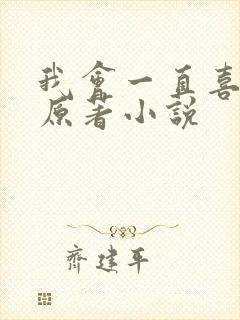 我會一直喜
原著小說
齊建平